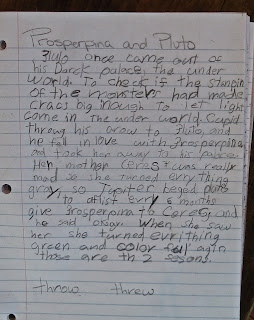 Prosperpina and Pluto
Pluto once came out of
his Darck palace, the under
world. To check if the stomping
of the monsters had mached
cracs big inough to let light
come in the under world. Cupid
throug his arow to Pluto, and
he fall in love with Prosperpina
and took her away to his palace.
Her mother Ceres was really
mad so she turned evrything
gray, so Jupiter beged pluto
to atlist evry 6 months
give Prosperpina to Ceres, and
he said okay. When she saw
her she turned evrithing
green and color full agin
those are th 2 sesons.
throw threw